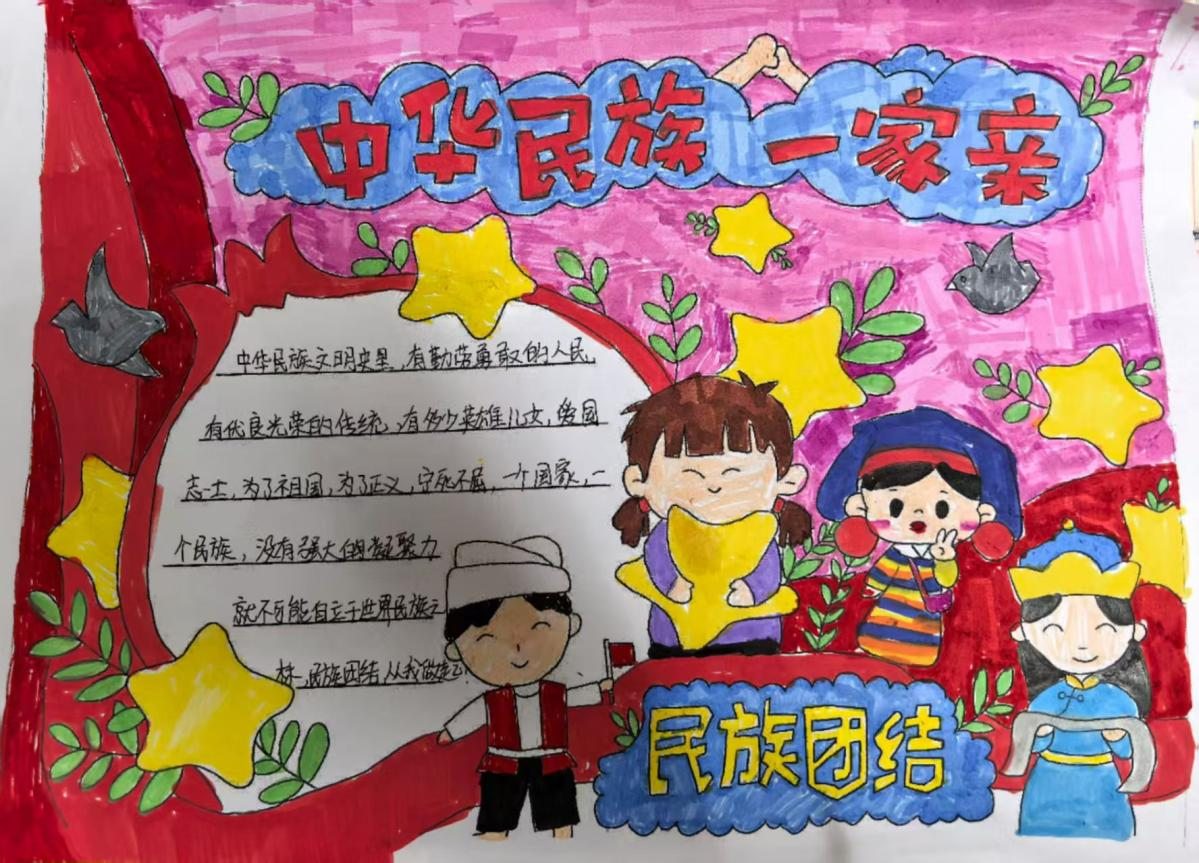 中华民族一家亲
中华民族文明史里,有勤劳勇敢的人民,
有优良光荣的传统,有多少英雄儿女,爱国
志士,为了祖国,为了正义,宁死不屈,一个国家,一
个民族,没有强大的凝聚力
就不可能自立于世界民族之
林,民族团结,从我做起
民族团结